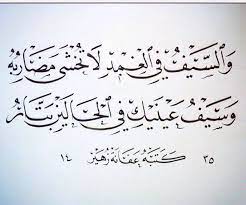 وَالسَّيْفُ فِي الْغِمْدِ لَا تُخْشَى مَضَارِبُهُ
وَسَيْفُ عَيْنَيْكَ فِي الْحَالَيْنِ بَتَّارُ
كتبه عفانة زهير
١٤ ٣٥